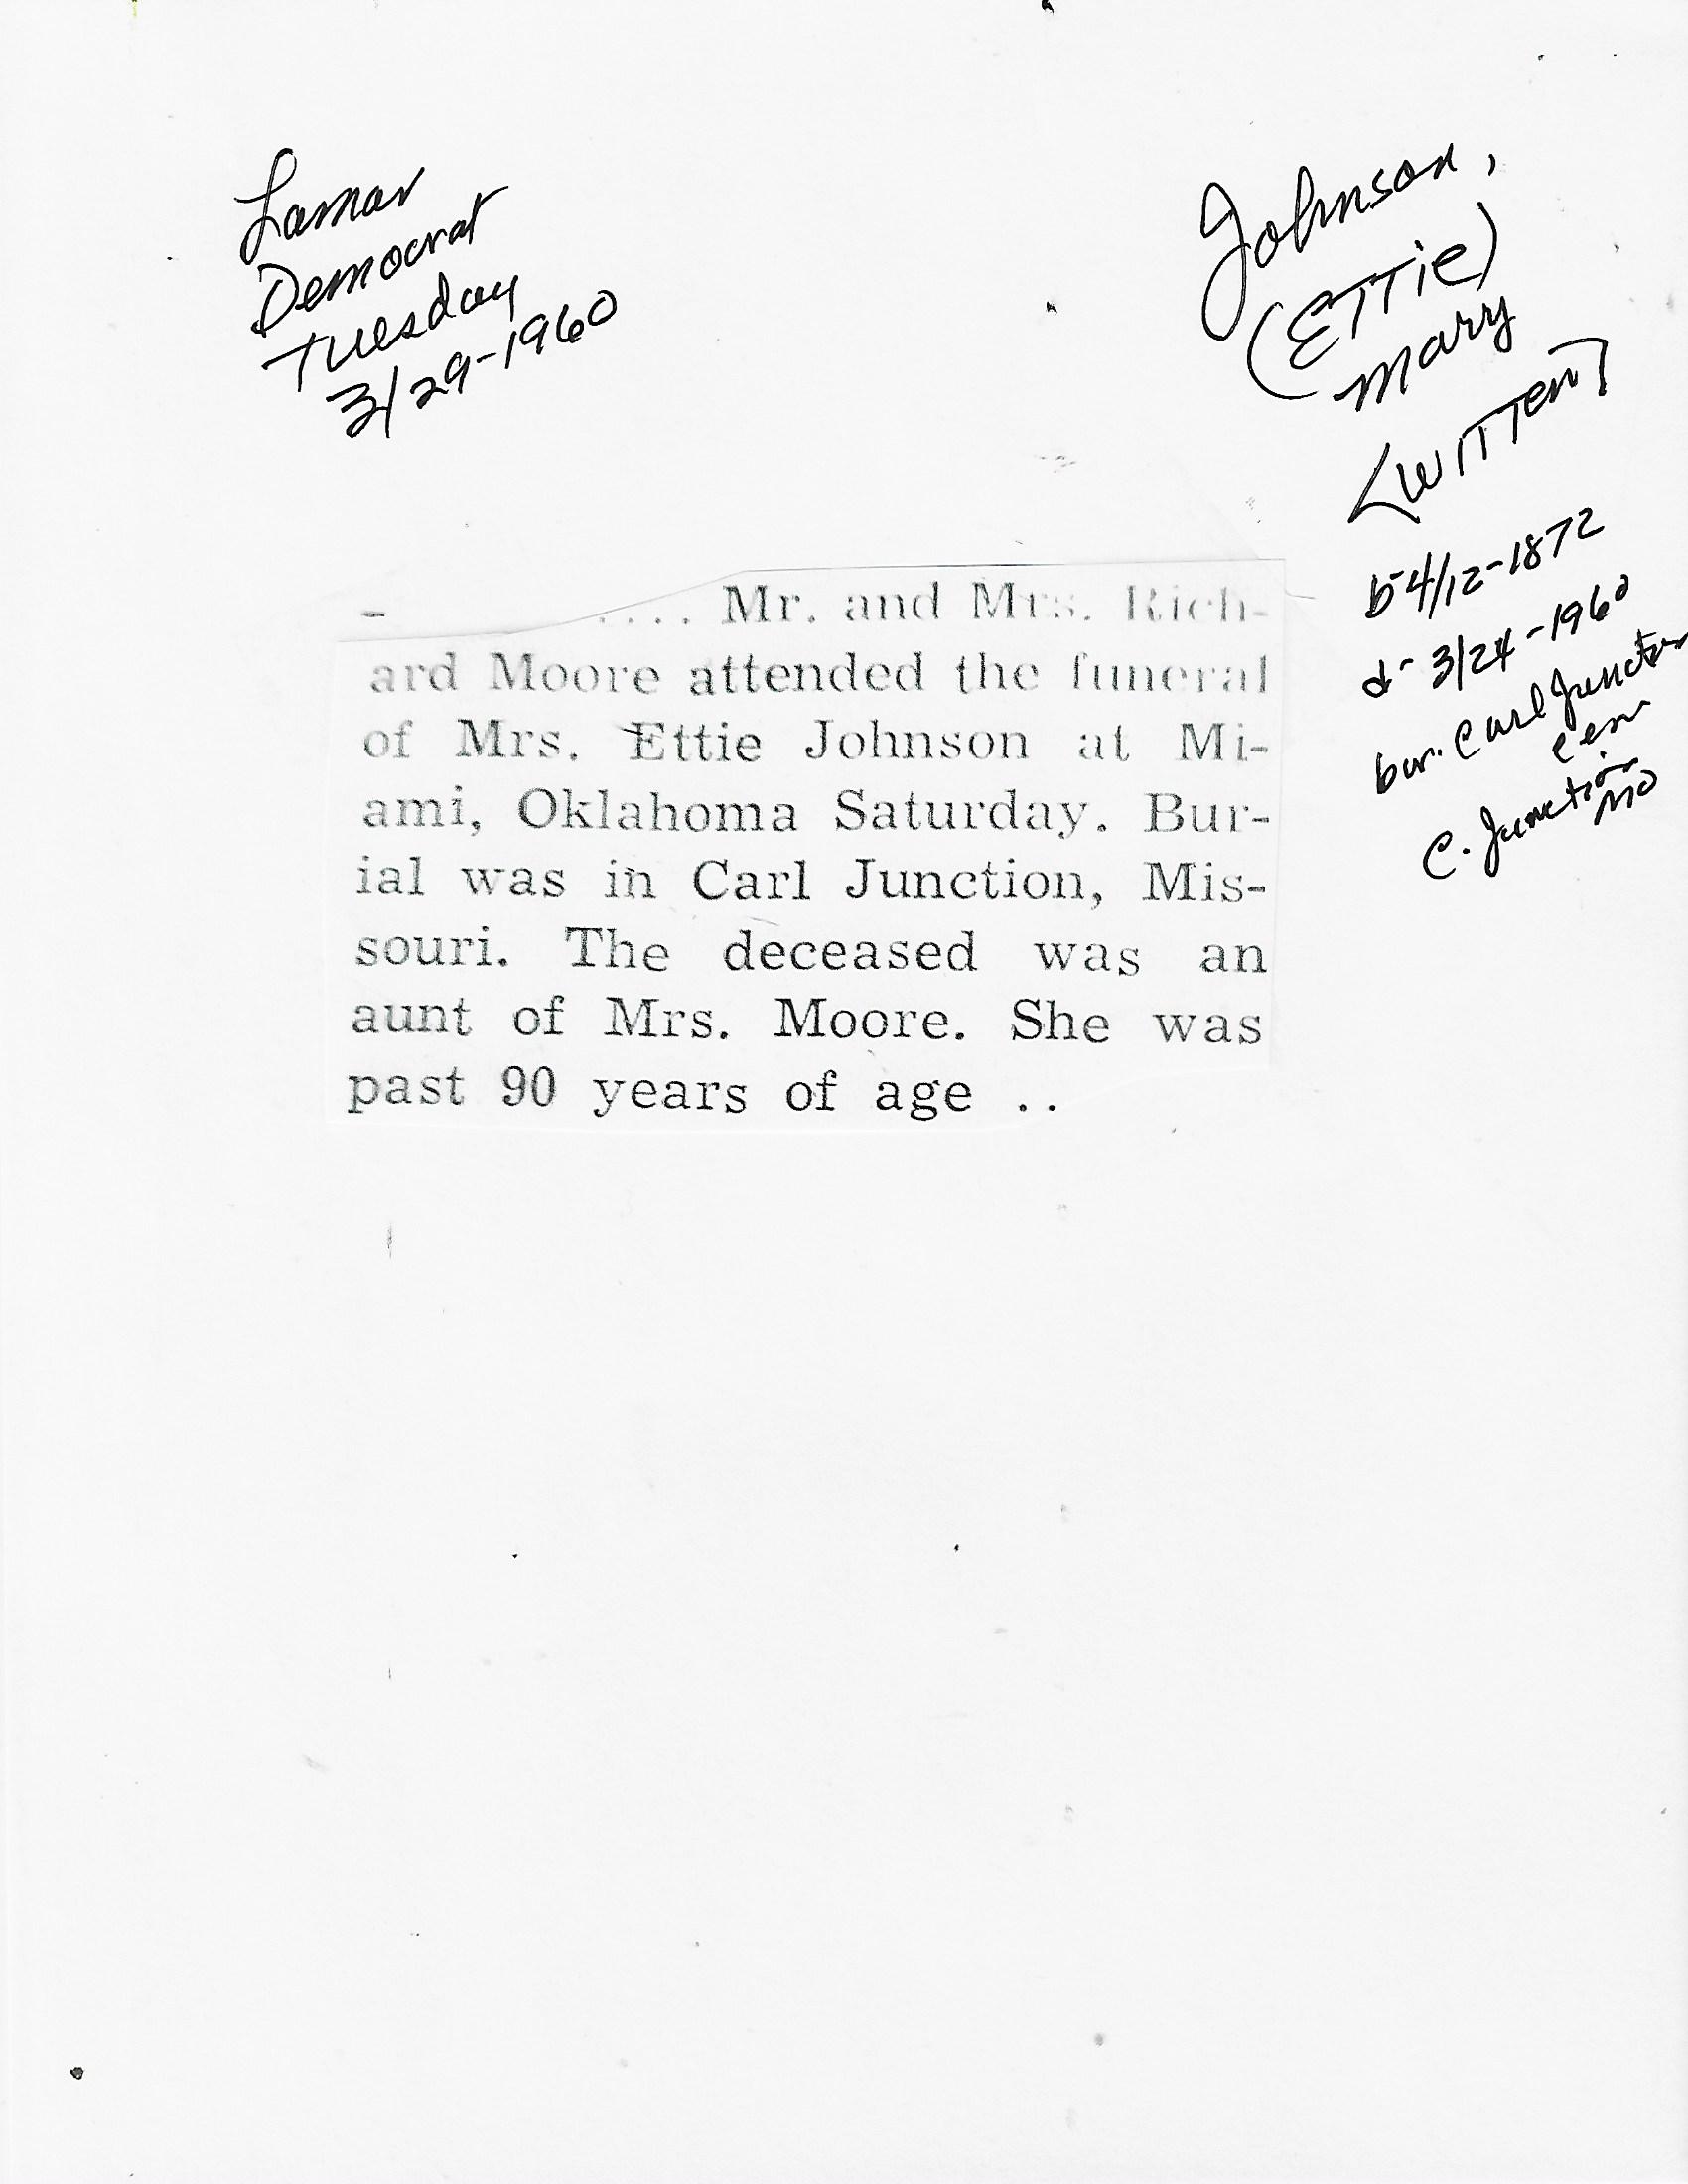 Lamar
Democrat
Tuesday
3/29-1960
Johnson,
(ETTie)
Mary
<WITTen>
b-4/12-1872
d- 3/24-1960
bur. Carl Junction
Cem
C. Junction
MO
.... Mr. and Mrs. Rich-
ard Moore attended the funeral
of Mrs. Ettie Johnson at Mi-
ami, Oklahoma Saturday. Bur-
ial was in Carl Junction, Mis-
souri. The deceased was an
aunt of Mrs. Moore. She was
past 90 years of age ..